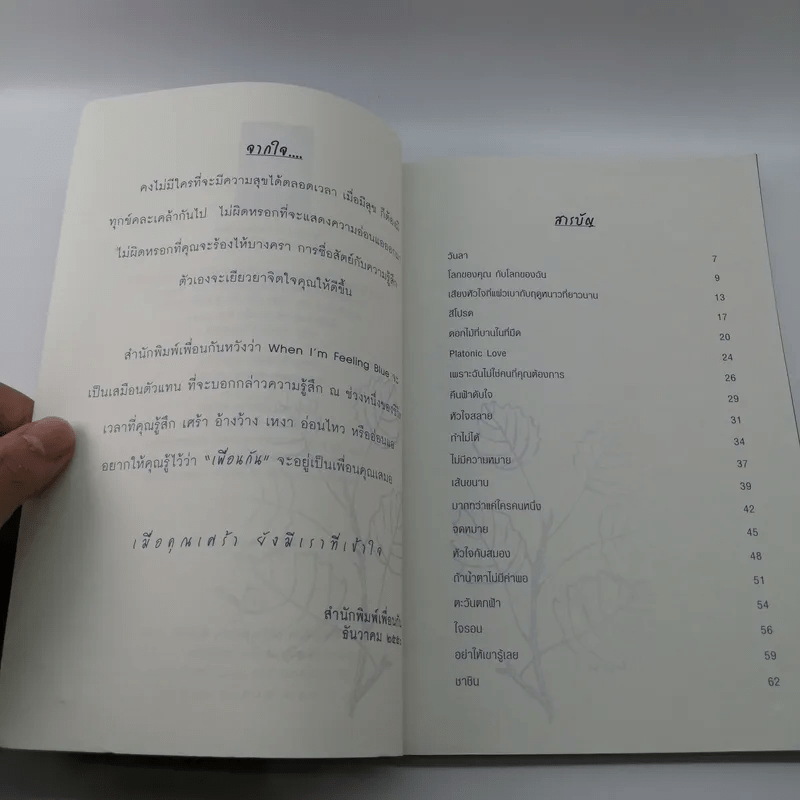 จากใจ....
คงไม่มีใครที่จะมีความสุขได้ตลอดเวลา เมื่อมีสุข ก็ต้องมี
ทุกข์คละเคล้ากันไป ไม่ผิดหรอกที่จะแสดงความอ่อนแอออกมา
ไม่ผิดหรอกที่คุณจะร้องไห้บางครา การซื่อสัตย์กับความรู้สึก
ตัวเองจะเยียวยาจิตใจคุณให้ดีขึ้น
สำนักพิมพ์เพื่อนกันหวังว่า When I'm Feeling Blue จะ
เป็นเสมือนตัวแทน ที่จะบอกกล่าวความรู้สึก ณ ช่วงหนึ่งของชีวิต
เวลาที่คุณรู้สึก เศร้า อ้างว้าง เหงา อ่อนไหว หรืออ่อนแอ
อยากให้คุณรู้ไว้ว่า "เพื่อนกัน" จะอยู่เป็นเพื่อนคุณเสมอ
เมื่อคุณเศร้า ยังมีเราที่เข้าใจ
สำนักพิมพ์เพื่อนกัน
ธันวาคม
สารบัญ
วันลา 7
โลกของคุณ กับโลกของฉัน 9
เสียงหัวใจที่แผ่วเบากับฤดูหนาวที่ยาวนาน 13
สีโปรด 17
ดอกไม้ที่บานในที่มืด 20
Platonic Love 24
เพราะฉันไม่ใช่คนที่คุณต้องการ 26
คืนฟ้าดับใจ 29
หัวใจสลาย 31
ทำไม่ได้ 34
ไม่มีความหมาย 37
เส้นขนาน 39
มากกว่าแค่ใครคนหนึ่ง 42
จดหมาย 45
หัวใจกับสมอง 48
ถ้าน้ำตาไม่มีค่าพอ 51
ตะวันตกฟ้า 54
ใจรอน 56
อย่าให้เขารู้เลย 59
ชาชิน 62